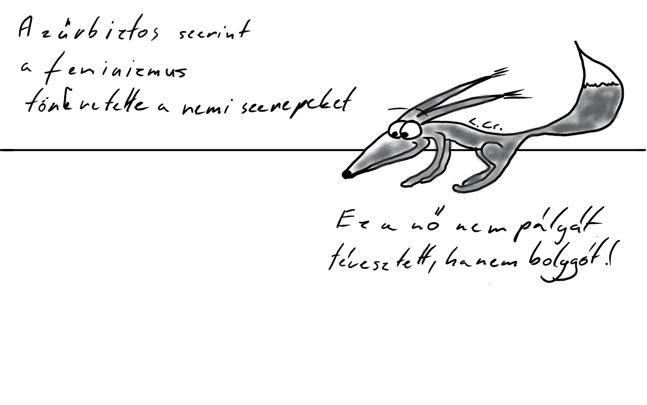 A zűrbiztos szerint
a feminizmus
tönkretette a nemi szerepeket
Ez a nő nem pályát
tévesztett, hanem bolygót!